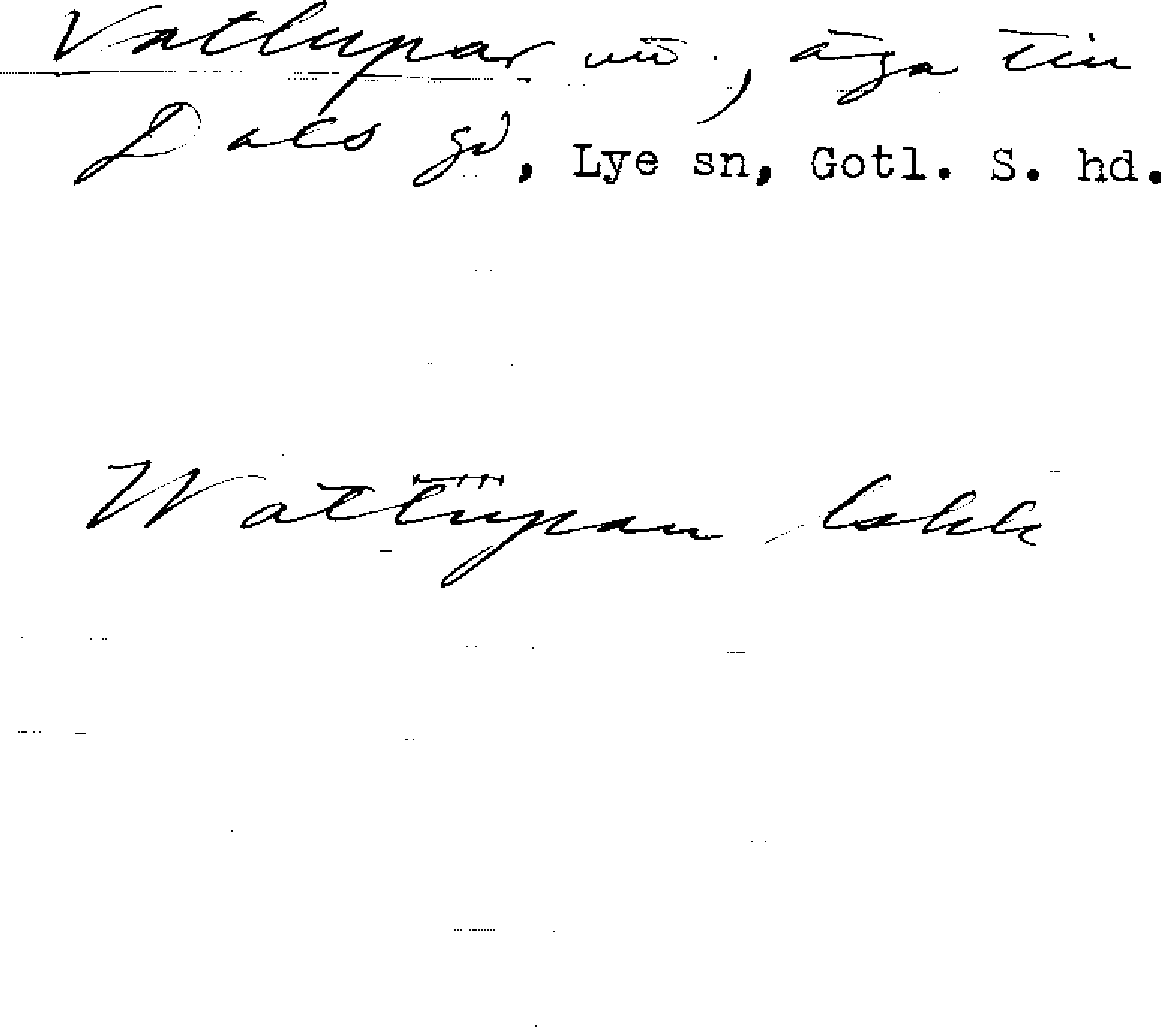 Vatlupar , äga till
Dals gd, Lye sn, Gotl. S. hd.
Wattlupan Lskk